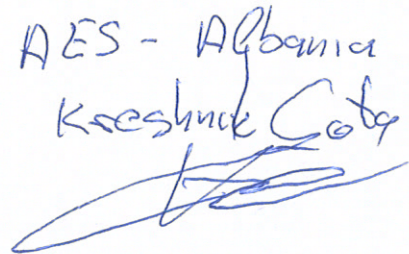 AES - Albania
Kreshnik Cota